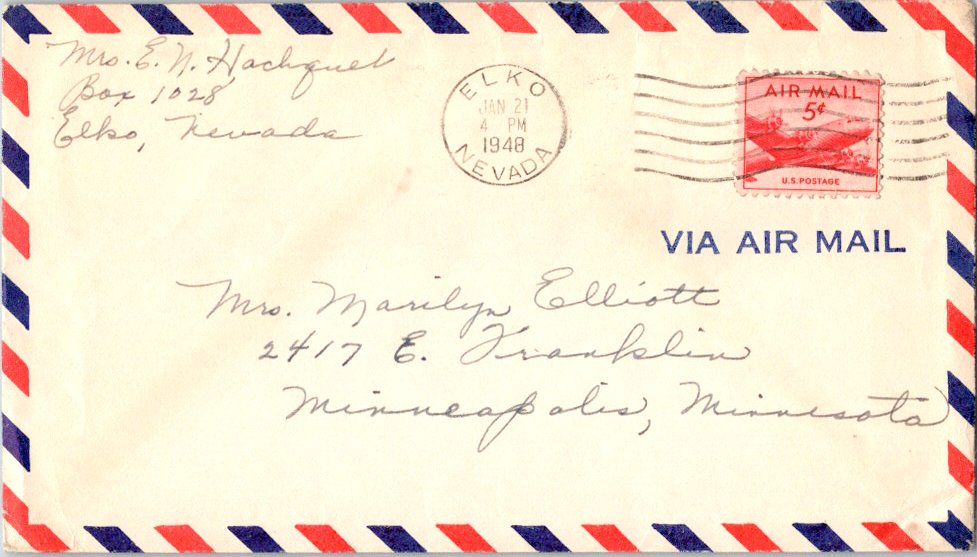 Mrs. E. N. Hachquet
Box 1028
Elko, Nevada
ELKO
JAN 21
4 PM
1948
NEVADA
AIR MAIL
5¢
U.S. POSTAGE
VIA AIR MAIL
Mrs. Marilyn Elliott
2417 E. Franklin
Minneapolis, Minnesota